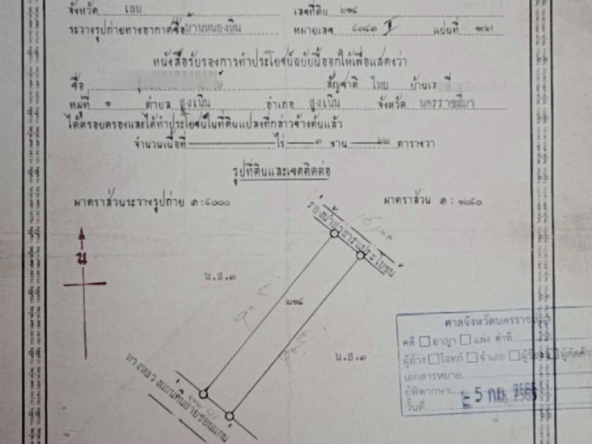 จังหวัด เลย
เลขที่ดิน ๒๙๘
ระวางรูปถ่ายทางอากาศชื่อ บ้านหนองหิน
หมายเลข ๕๓๔๓ I แผ่นที่
หนังสือรับรองการทำประโยชน์ฉบับนี้ออกให้เพื่อแสดงว่า
ชื่อ สัญชาติ ไทย บ้านเลขที่
หมู่ที่ ๑ ตำบล สูงเนิน อำเภอ สูงเนิน จังหวัด นครราชสีมา
ได้ครอบครองและได้ทำประโยชน์ในที่ดินแปลงที่กล่าวข้างต้นแล้ว
จำนวนเนื้อที่ ไร่ ๑ งาน ตารางวา
รูปที่ดินและเขตติดต่อ
มาตราส่วนระวางรูปถ่าย ๑:๕๐๐๐
มาตราส่วน ๑ :
ร่องน้ำสาธารณประโยชน์
น
น.ส.๓
๒๙๘
น.ส.๓
ทางหลวงแผ่นดินสายขอนแก่น
ศาลจังหวัดนครราช
คดี อาญา แพ่ง ดำที่
ผู้อ้าง โจทก์ จำเลย ผู้ร้อง ผู้คัดค้าน
เอกสารหมาย
ผู้พิพากษา
วันที่ - 5 ก.พ. 2565